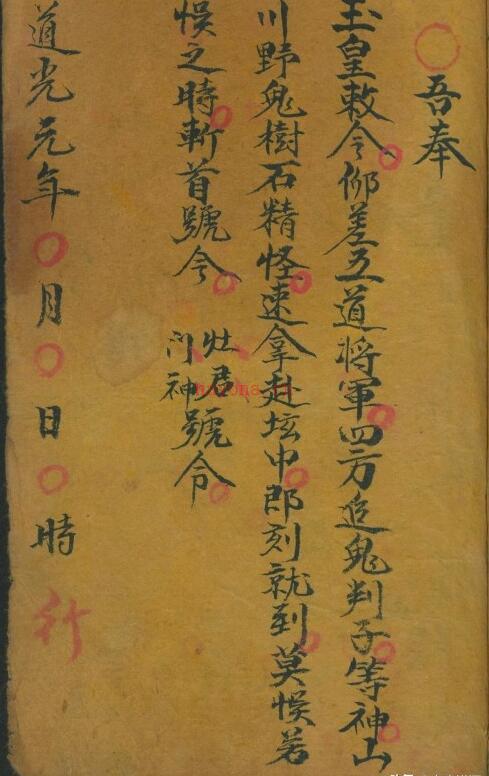 〇吾奉
玉皇敕令仰差五道将軍四方追鬼判子等神山
川野鬼樹石精怪速拿赴坛中即刻就到莫悮若
悮之時斬首號令 灶君门神號令
道光元年〇月〇日〇時行